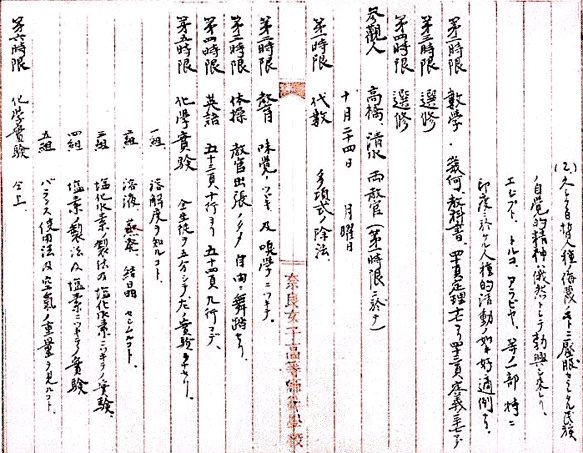 (2) 久シク白哲人種ノ侮蔑ノ下ニ圧服セラレタル民族
ノ自覚的精神ハ俄然トシテ勃興シ来レリ、
エヂプト、トルコ、アラビヤ、等ノ一部特ニ
印度ニ於ケル人種的活動ノ如キ好適例ナリ。
第一時限 数學・幾何、教科書、四頁定理七ヨリ四三頁定義三七マデ
第三時限 選修
第四時限 選修
参觀人 高橋、清水 両教官（第一時限ニ於テ）
十月二十四日 月曜日
第一時限 代数 多項式ノ除法
第二時限 教育 味覚ニツキ 及 嗅學ニツキテ。
第三時限 体操 教官出張ノタメ 自由ニ舞踏セリ、
第四時限 英語 五十三頁十行ヨリ 五十四頁九行マデ、
第五時限 化學實驗 全生徒ヲ五分シテ、左ノ實驗ヲナセリ、
一組 溶解度ヲ知ルコト、
二組 溶液 蒸発 結晶
三組 塩化水素ノ製法及塩化水素ニツキテノ實驗、
四組 塩素ノ製法及塩素ニツキテノ實驗
五組 バランス使用法及空氣ノ重量ヲ見ルコト、
第六時限 化學實驗 仝上、
奈良女子高等師範學校